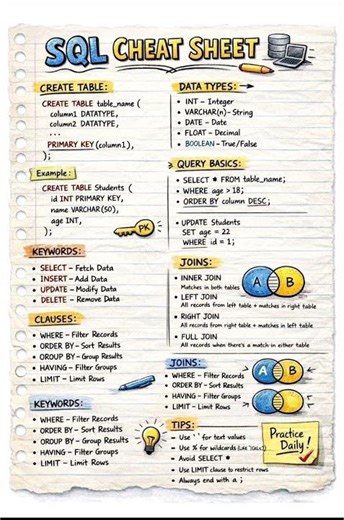 SQL CHEAT SHEET
CREATE TABLE:
CREATE TABLE table_name (
column1 DATATYPE,
column2 DATATYPE,
...
PRIMARY KEY (column1),
);
Example:
CREATE TABLE Students (
id INT PRIMARY KEY,
name VARCHAR(50),
age INT,
);
PK
KEYWORDS:
• SELECT – Fetch Data
• INSERT – Add Data
• UPDATE – Modify Data
• DELETE – Remove Data
CLAUSES:
WHERE – Filter Records
• ORDER BY – Sort Results
• OROUP BY – Group Results
• HAVING – Filter Groups
• LIMIT – Limit Rows
KEYWORDS:
• WHERE – Filter Records
• ORDER BY – Sort Results
• OROUP BY – Group Results
• HAVING – Filter Groups
• LIMIT – Limit Rows
DATA TYPES:
• INT – Integer
• VARCHAR(n) – String
• DATE – Date
• FLOAT – Decimal
• BOOLEAN – True/False
QUERY BASICS:
• SELECT * FROM table_name;
• WHERE age > 18;
• ORDER BY column DESC;
• UPDATE Students
SET age = 22
WHERE id = 1;
JOINS:
• INNER JOIN
Matches in both tables
• LEFT JOIN
All records from left table + matches in right table
• RIGHT JOIN
All records from right table + matches in left table
• FULL JOIN
All records when there's a match in either table
A B
JOINS:
• WHERE – Filter Records
ORDER BY – Sort Results
• HAVING – Filter Groups
• LIMIT – Limit Rows
A B
TIPS:
• Use ' ' for text values
• Use % for wildcards
• Avoid SELECT *
• Use LIMIT clause to restrict rows
• Always end with a ;
Practice
Daily!